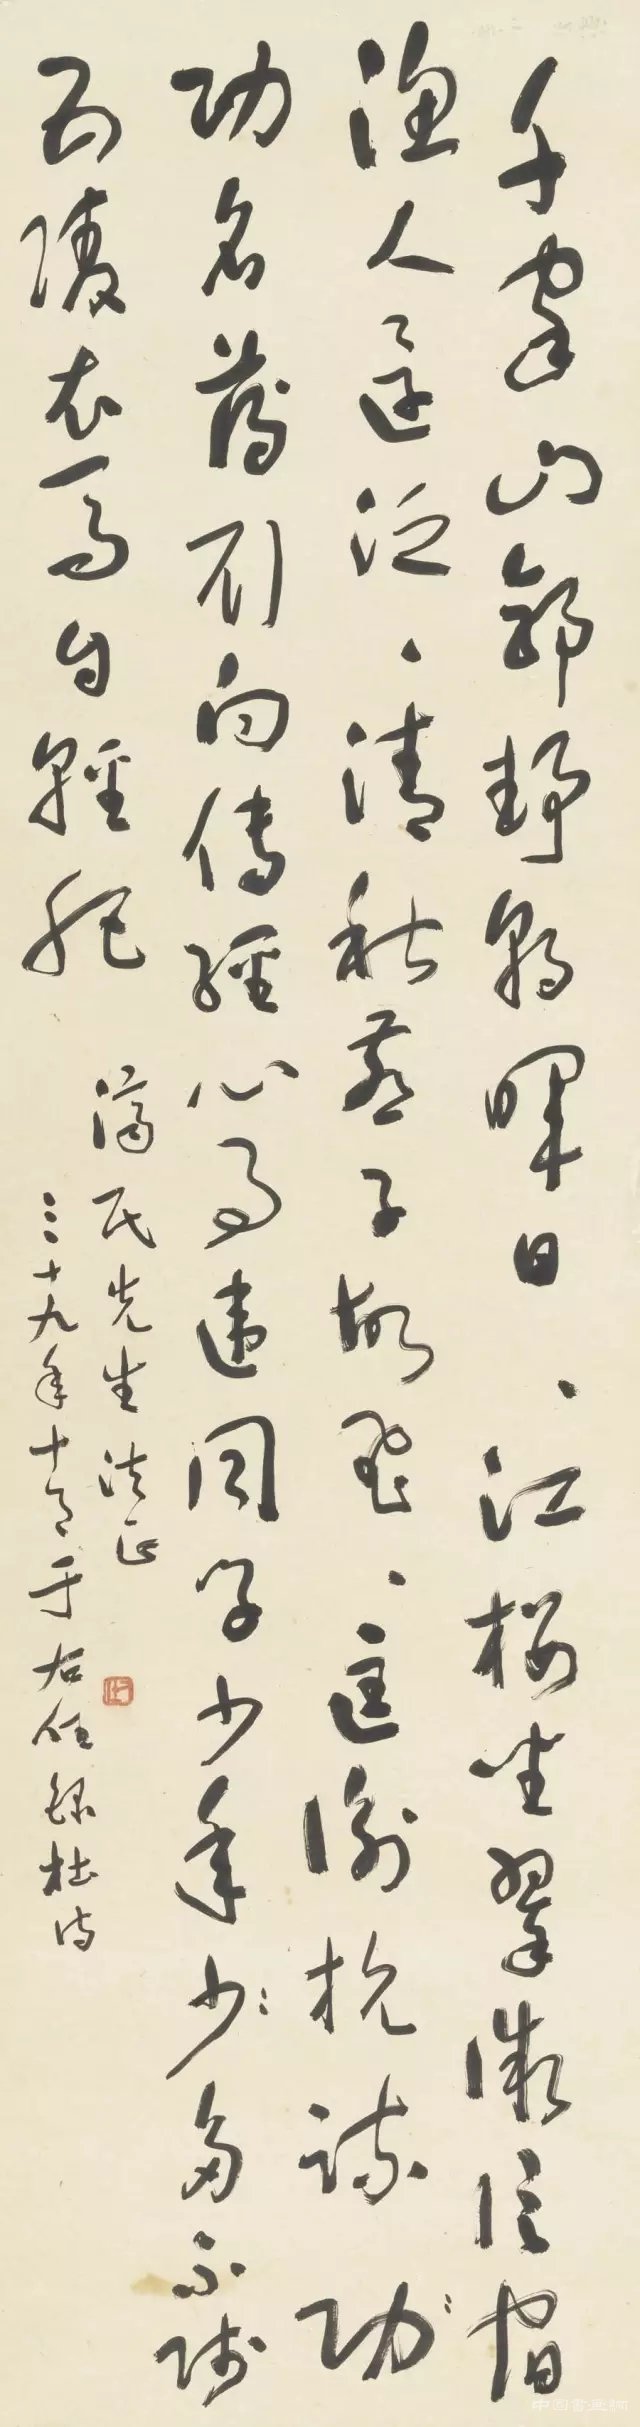 千家山郭靜朝暉日、江樓坐翠微信宿
漁人還泛、清秋燕子故飛、匡衡抗疏功
功名薄劉向傳經心事違同學少年少多不賤
五陵衣馬自輕肥
濟民先生法正
三十九年十月于右任錄杜詩
中國書畫網